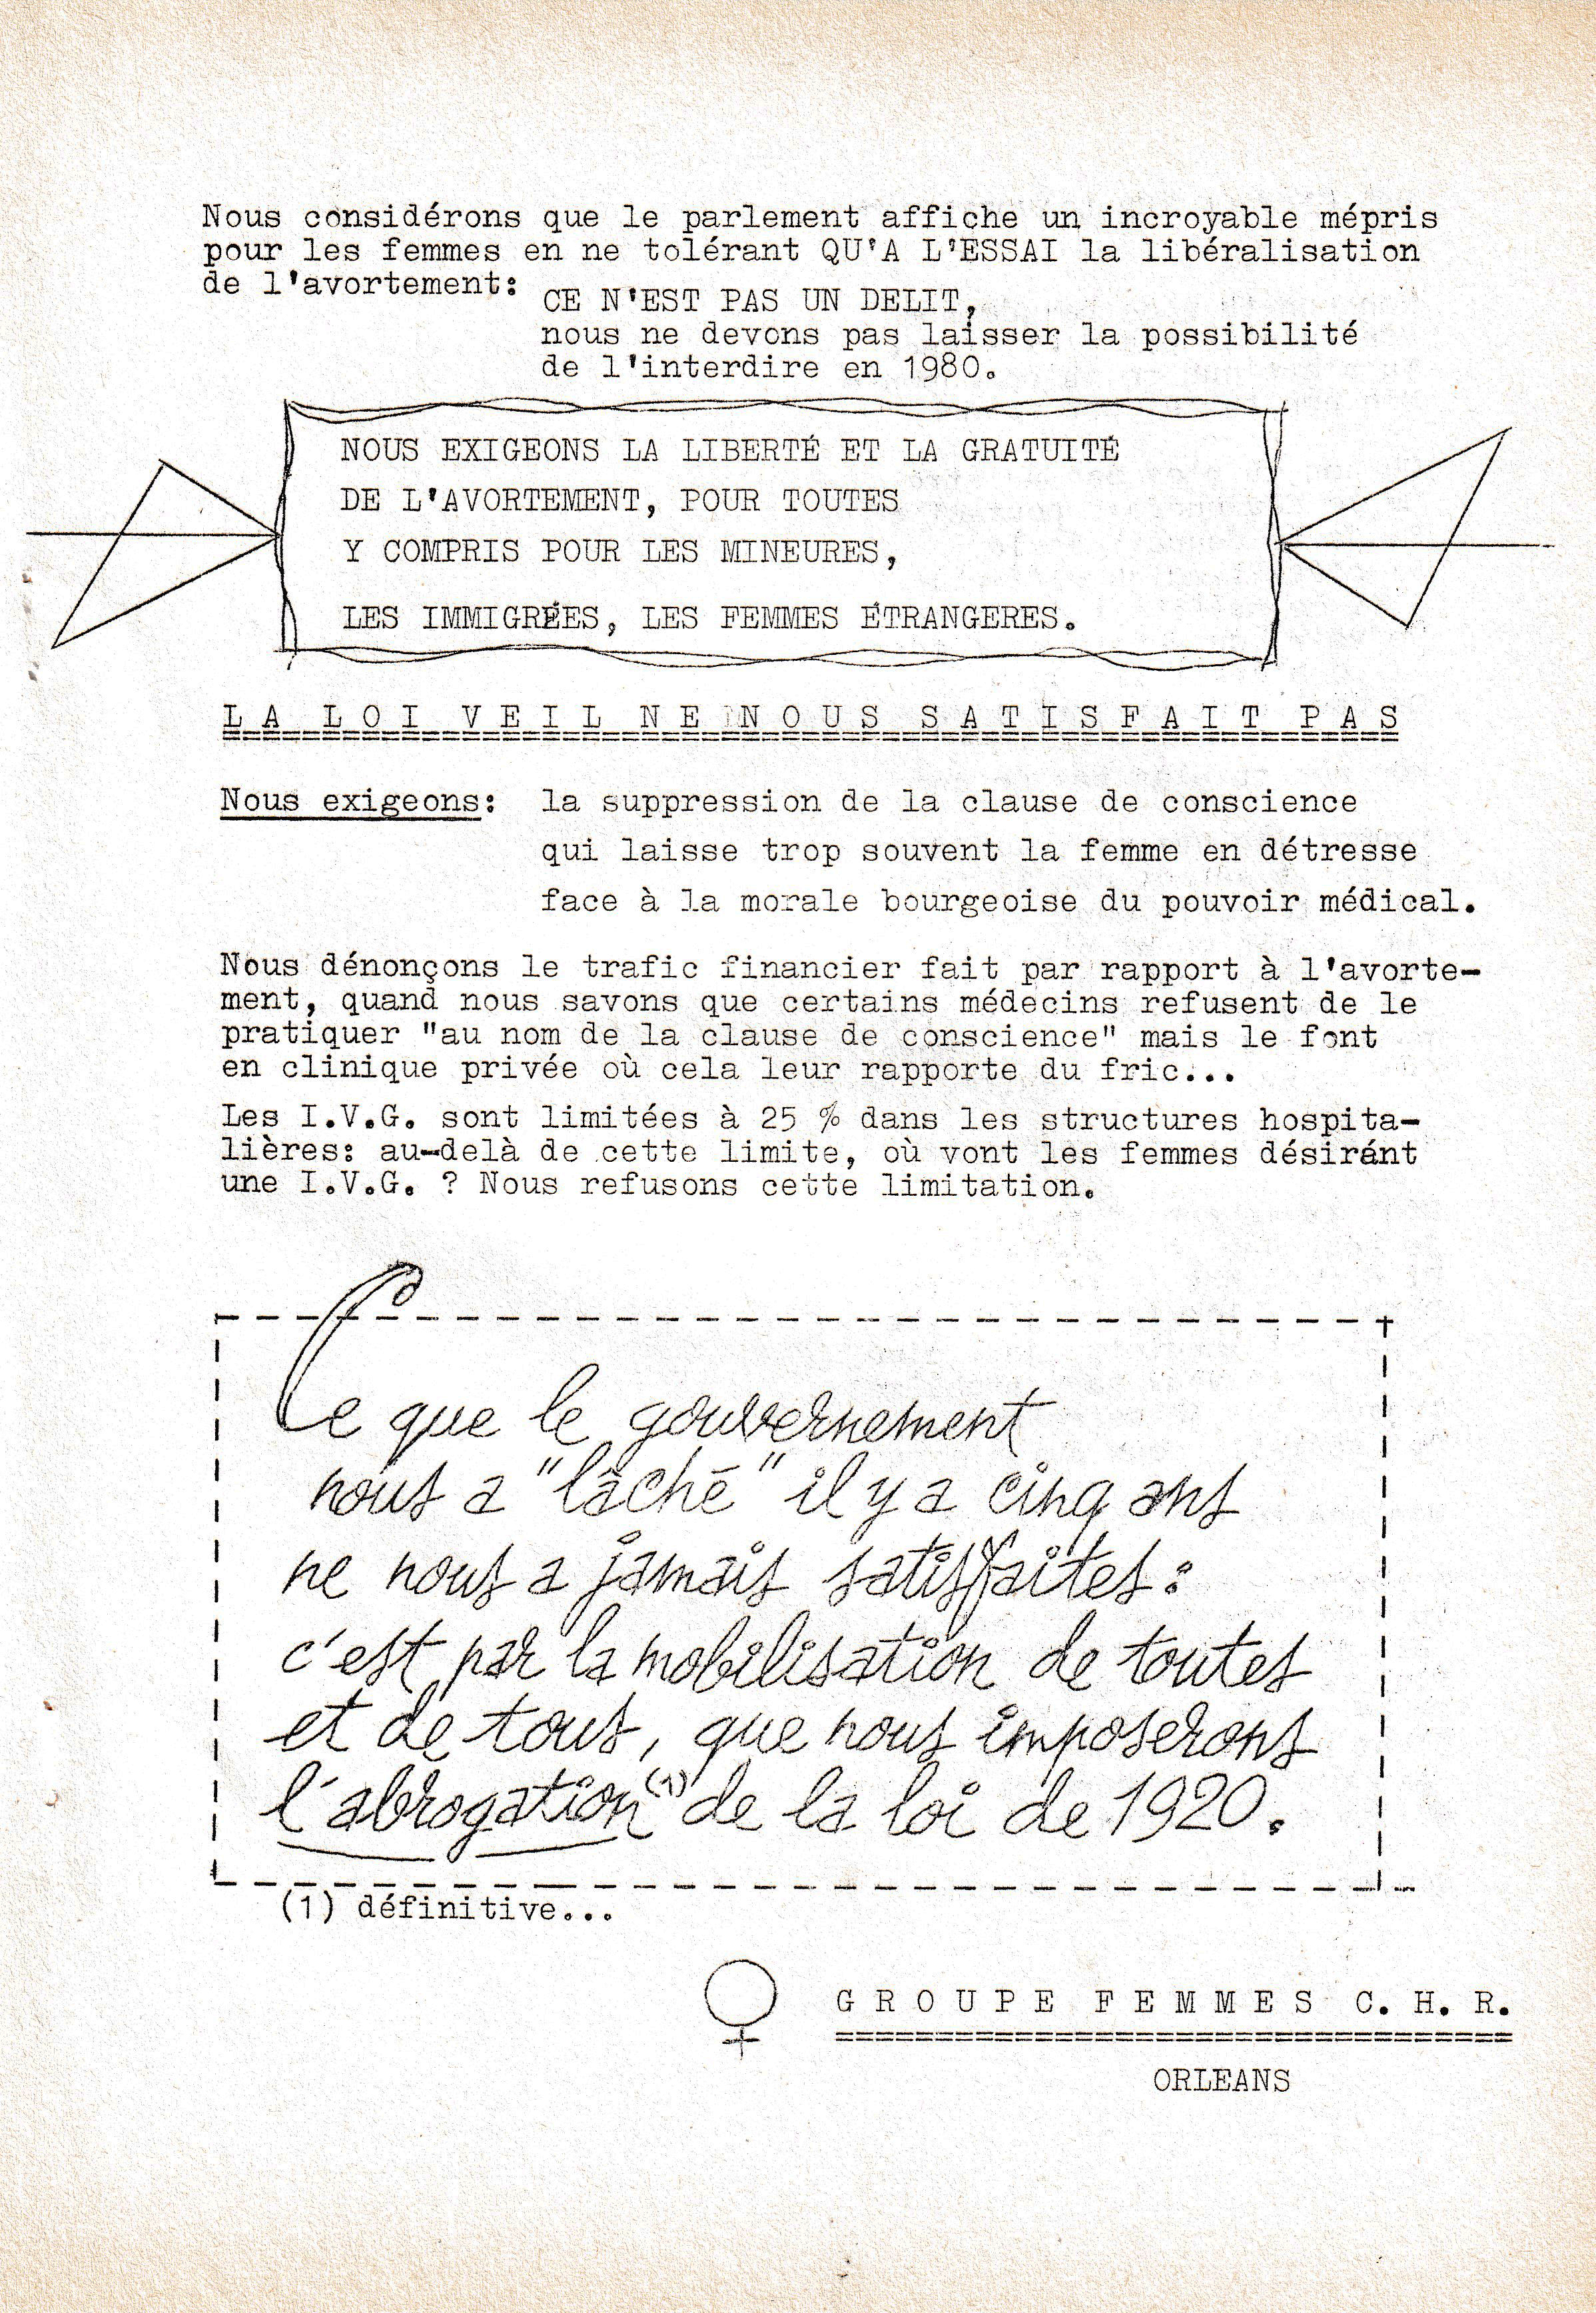 Nous considérons que le parlement affiche un incroyable mépris
pour les femmes en ne tolérant QU'A L'ESSAI la libéralisation
de l'avortement:
CE N'EST PAS UN DELIT,
nous ne devons pas laisser la possibilité
de l'interdire en 1980.
NOUS EXIGEONS LA LIBERTÉ ET LA GRATUITÉ
DE L'AVORTEMENT, POUR TOUTES
Y COMPRIS POUR LES MINEURES,
LES IMMIGRÉES, LES FEMMES ÉTRANGERES.
LA LOI VEIL NE NOUS SATISFAIT PAS
Nous exigeons: la suppression de la clause de conscience
qui laisse trop souvent la femme en détresse
face à la morale bourgeoise du pouvoir médical.
Nous dénonçons le trafic financier fait par rapport à l'avorte-
ment, quand nous savons que certains médecins refusent de le
pratiquer "au nom de la clause de conscience" mais le font
en clinique privée où cela leur rapporte du fric...
Les I.V.G. sont limitées à 25 % dans les structures hospita-
lières: au-delà de cette limite, où vont les femmes désiránt
une I.V.G. ? Nous refusons cette limitation.
Ce que le gouvernement
nous a "lâché" il y a cinq ans
ne nous a jamais satisfaites:
c'est par la mobilisation de toutes
et de tous, que nous imposerons
l'abrogation(1) de la loi de 1920.
(1) définitive...
GROUPE FEMMES C.H.R.
ORLEANS